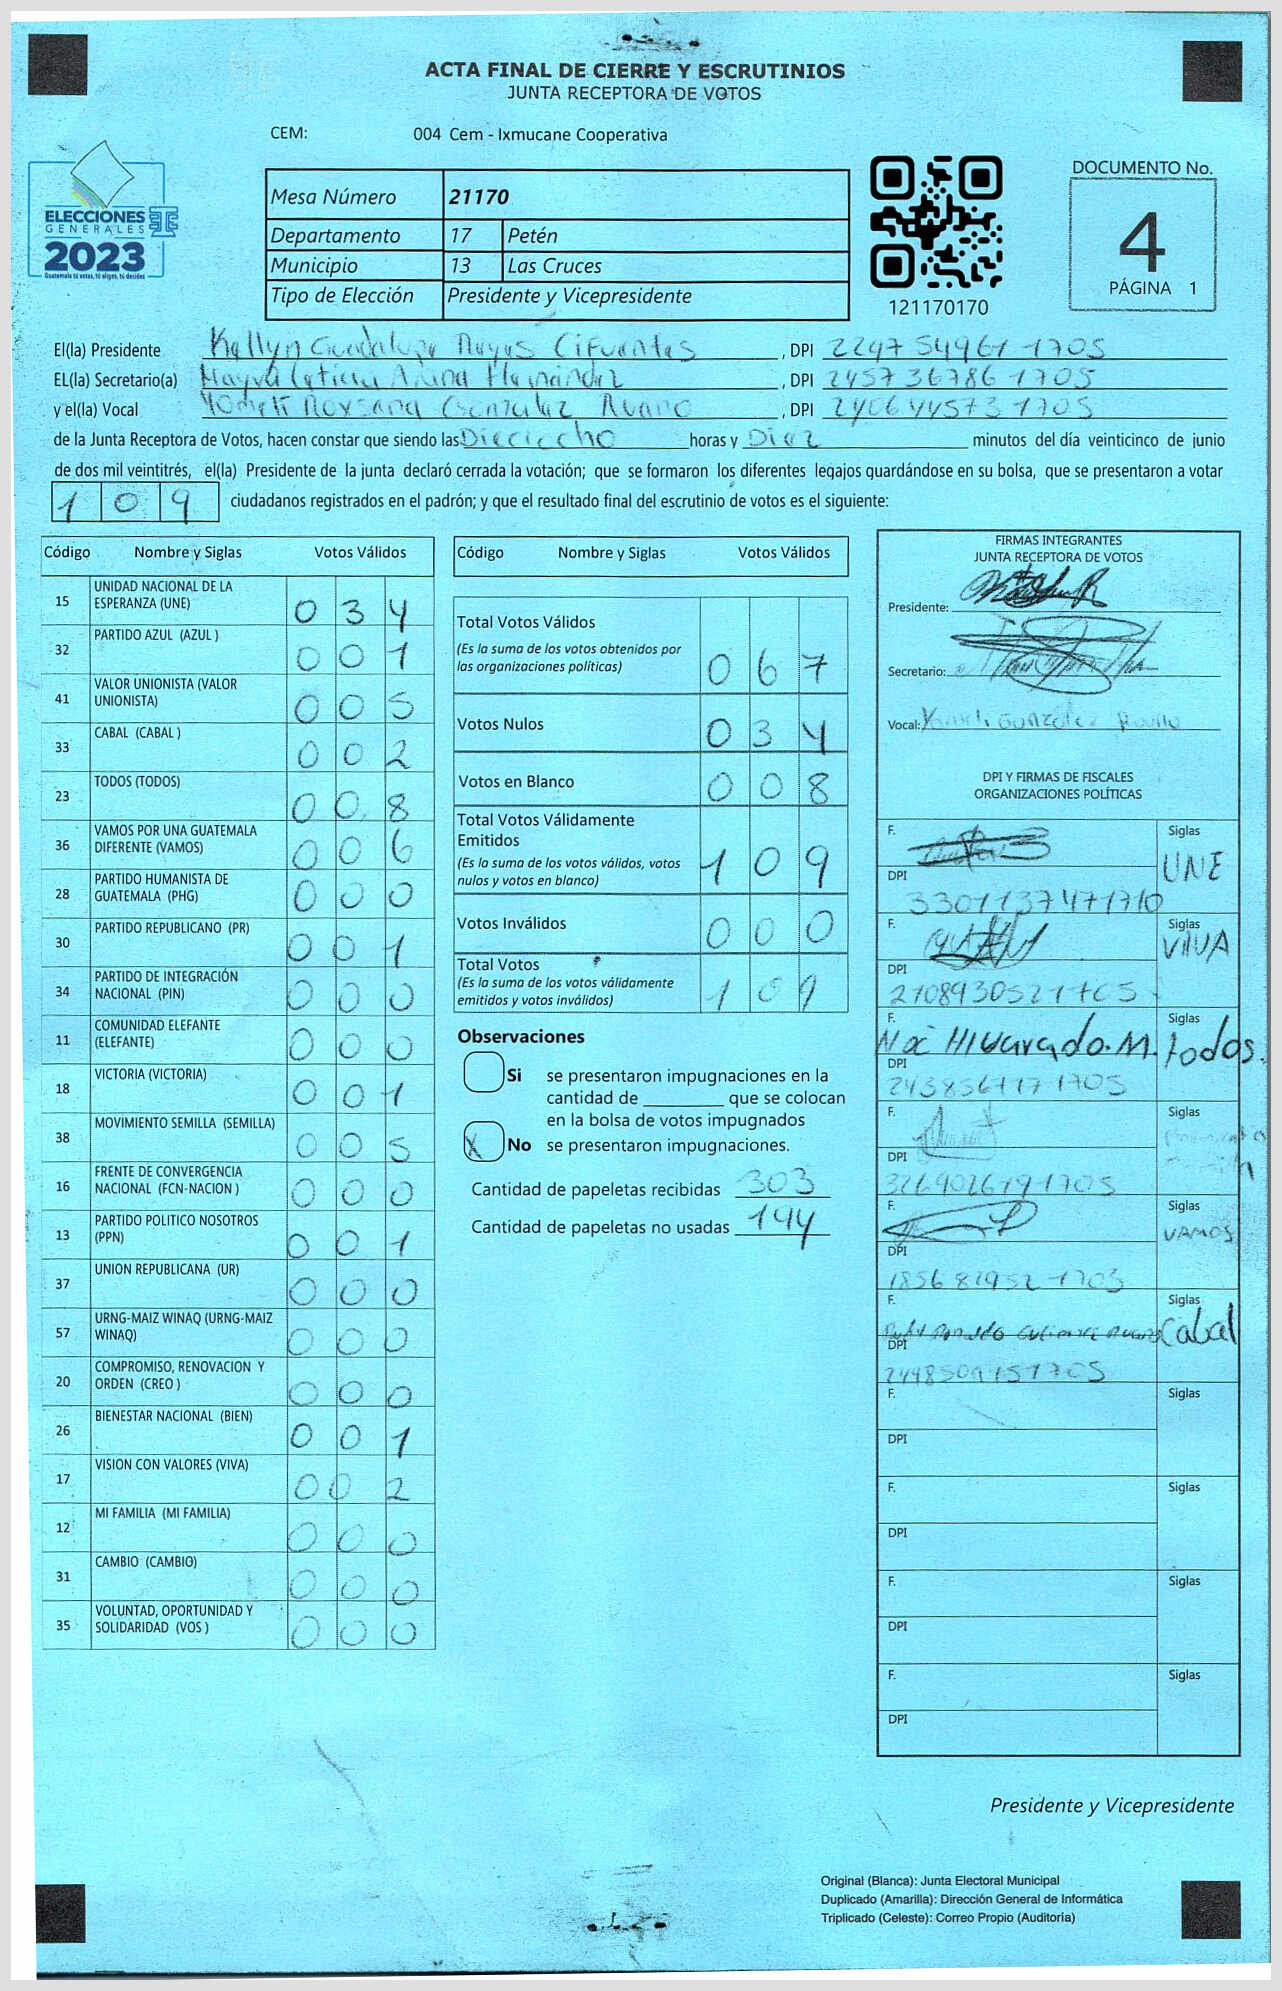 ACTA FINAL DE CIERRE Y ESCRUTINIOS
JUNTA RECEPTORA DE VOTOS
CEM: 004 Cem - Ixmucane Cooperativa
ELECCIONES
GENERALES
2023
Guatemala tú votas, tú eliges, tú decides
Mesa Número 21170
Departamento 17 Petén
Municipio 13 Las Cruces
Tipo de Elección Presidente y Vicepresidente
121170170
DOCUMENTO No.
4
PÁGINA 1
El(la) Presidente Cifuentes , DPI 2247 54961 1705
EL(la) Secretario(a) Hernández , DPI 2457 36786 1705
y el(la) Vocal Roxsana González , DPI 2406 44573 1705
de la Junta Receptora de Votos, hacen constar que siendo las Dieciocho horas y Diez minutos del día veinticinco de junio
de dos mil veintitrés, el(la) Presidente de la junta declaró cerrada la votación; que se formaron los diferentes legajos guardándose en su bolsa, que se presentaron a votar
109 ciudadanos registrados en el padrón; y que el resultado final del escrutinio de votos es el siguiente:
Código Nombre y Siglas Votos Válidos
15 UNIDAD NACIONAL DE LA ESPERANZA (UNE) 034
32 PARTIDO AZUL (AZUL ) 001
41 VALOR UNIONISTA (VALOR UNIONISTA) 005
33 CABAL (CABAL ) 002
23 TODOS (TODOS) 008
36 VAMOS POR UNA GUATEMALA DIFERENTE (VAMOS) 006
28 PARTIDO HUMANISTA DE GUATEMALA (PHG) 000
30 PARTIDO REPUBLICANO (PR) 001
34 PARTIDO DE INTEGRACIÓN NACIONAL (PIN) 000
11 COMUNIDAD ELEFANTE (ELEFANTE) 000
18 VICTORIA (VICTORIA) 001
38 MOVIMIENTO SEMILLA (SEMILLA) 005
16 FRENTE DE CONVERGENCIA NACIONAL (FCN-NACION ) 000
13 PARTIDO POLITICO NOSOTROS (PPN) 001
37 UNION REPUBLICANA (UR) 000
57 URNG-MAIZ WINAQ (URNG-MAIZ WINAQ) 000
20 COMPROMISO, RENOVACION Y ORDEN (CREO ) 000
26 BIENESTAR NACIONAL (BIEN) 001
17 VISION CON VALORES (VIVA) 002
12 MI FAMILIA (MI FAMILIA) 000
31 CAMBIO (CAMBIO) 000
35 VOLUNTAD, OPORTUNIDAD Y SOLIDARIDAD (VOS ) 000
Código Nombre y Siglas Votos Válidos
Total Votos Válidos 067
(Es la suma de los votos obtenidos por
las organizaciones políticas)
Votos Nulos 034
Votos en Blanco 008
Total Votos Válidamente
Emitidos 109
(Es la suma de los votos válidos, votos
nulos y votos en blanco)
Votos Inválidos 000
Total Votos 109
(Es la suma de los votos válidamente
emitidos y votos inválidos)
Observaciones
Si se presentaron impugnaciones en la
cantidad de ________ que se colocan
en la bolsa de votos impugnados
X No se presentaron impugnaciones.
Cantidad de papeletas recibidas 303
Cantidad de papeletas no usadas 194
FIRMAS INTEGRANTES
JUNTA RECEPTORA DE VOTOS
Presidente:
Secretario:
Vocal: González
DPI Y FIRMAS DE FISCALES
ORGANIZACIONES POLÍTICAS
F. Siglas UNE
DPI 330113747 1710
F. Siglas VIVA
DPI 210893052 1705
F. Noé Alvarado. M. Siglas todos.
DPI 243856717 1705
F. Siglas
DPI 326902619 1705
F. Siglas VAMOS
DPI 185682952 1703
F. Siglas Cabal
DPI
F. Siglas
DPI
F. Siglas
DPI
F. Siglas
DPI
F. Siglas
DPI
Presidente y Vicepresidente
Original (Blanca): Junta Electoral Municipal
Duplicado (Amarilla): Dirección General de Informática
Triplicado (Celeste): Correo Propio (Auditoría)